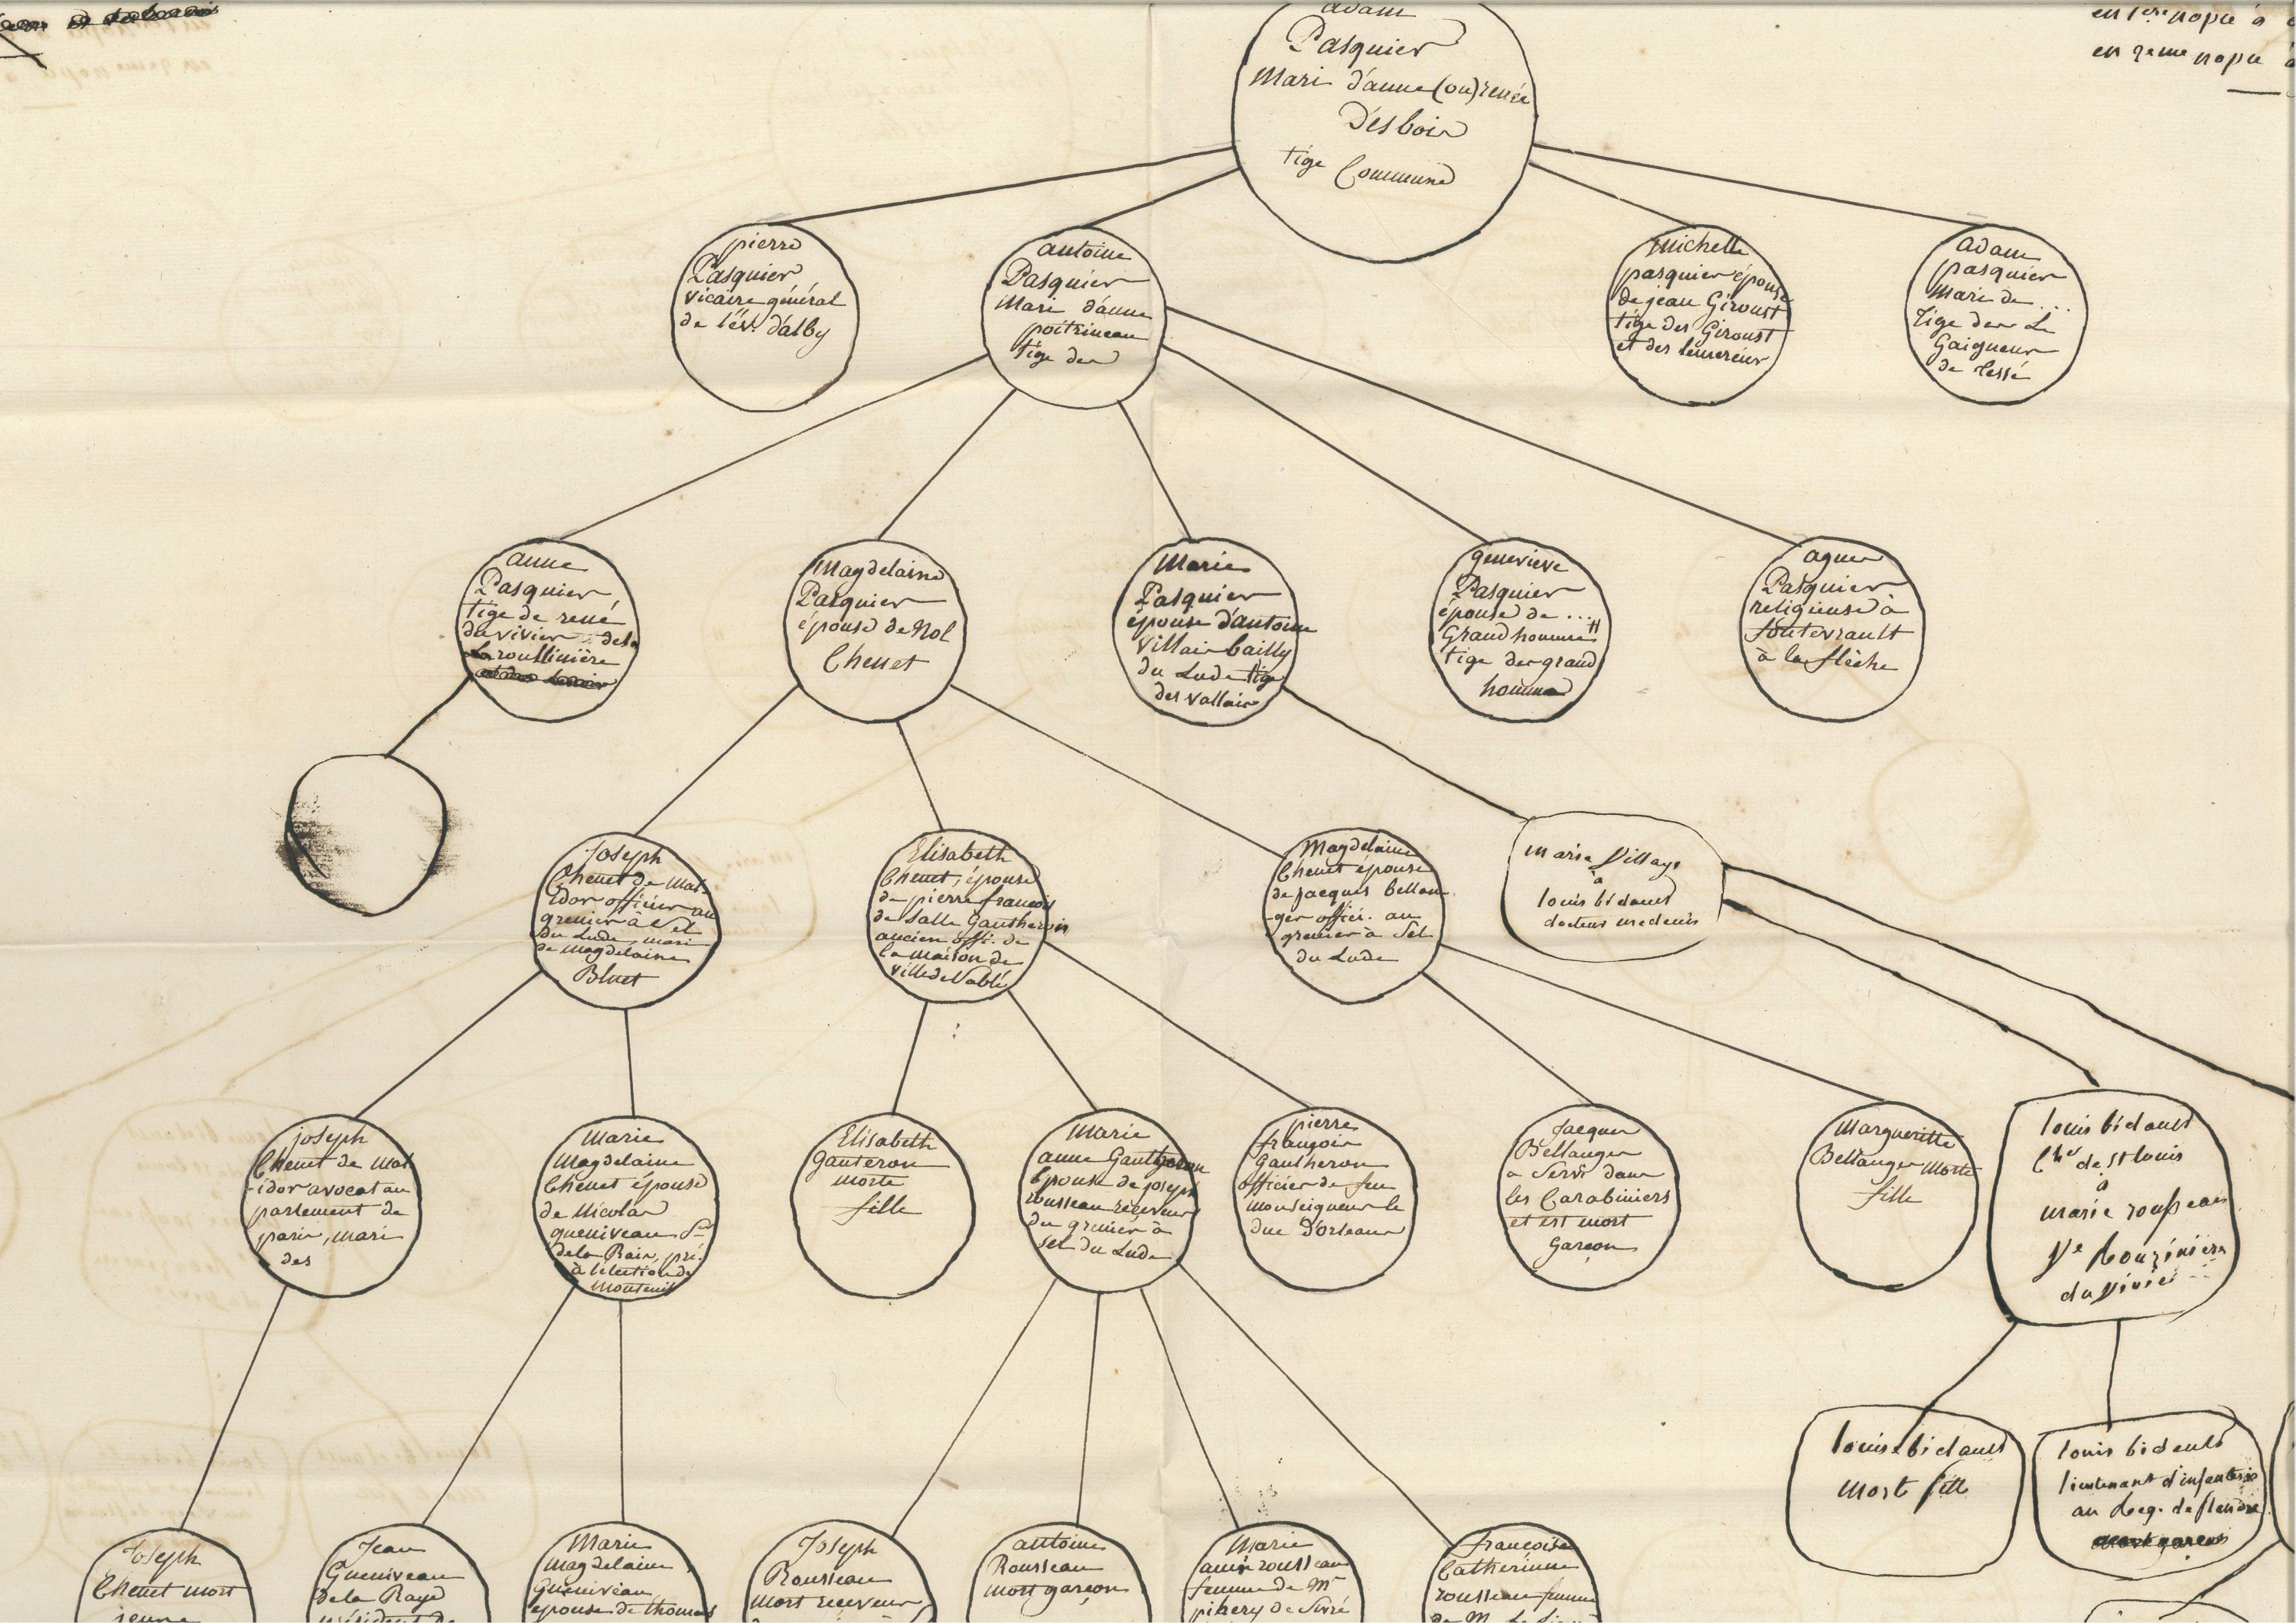 en 1ere nopce à
en 2eme nopce à
adam
Pasquier
Mari d'anne (ou) renée
Desbois
tige Commune
pierre
Pasquier
vicaire général
de l'év. d'alby
antoine
Pasquier
Mari d'anne
poitrineau
tige des
Michelle
pasquier épouse
de jean Giroust
tige des Giroust
et des
adam
pasquier
Mari de ...
tige des Le
Gaigneur
de Tessé
anne
Pasquier
tige de rené
du vivier de la
Roussinière
Magdelaine
Pasquier
épouse de
Chenet
Marie
Pasquier
épouse d'antoine
Villais bailly
du Lude tige
des vallais
genevieve
Pasquier
épouse de ...
Grandhomme
tige des grand
homme
agnes
Pasquier
religieuse à
fontevrault
à la flèche
Joseph
Chenet de Mal-
idor officier au
grenier à Sel
du Lude, mari
de Magdelaine
Bluet
Elisabeth
Chenet, épouse
de pierre francois
de Salle Gautheron
ancien offi. de
la maison de
ville de Sablé
Magdelaine
Chenet épouse
de jacques bellan-
ger offici. au
grenier à Sel
du Lude
marie Villays
à
louis bidault
docteur medecin
joseph
Chenet de Mal
-idor avocat au
parlement de
paris, mari
des
Marie
Magdelaine
Chenet épouse
de Nicolas
gueniveau Sr
de la Raie, pri.
à l'élection de
Monteuil
Elisabeth
Gauteron
morte
fille
Marie
anne Gautheron
Epouse de joseph
rousseau receveur
du grenier à
sel du Lude
pierre
françois
Gautheron
officier de feu
monseigneur le
duc d'orleans
Jacques
Bellanger
a Servi dans
les Carabiniers
et est mort
Garçon
Margueritte
Bellanger Morte
fille
louis bidault
Cher de St louis
à
marie rousseau
Ve
du Vivié
louise bidault
mort fille
louis bidault
lieutenant d'infanterie
au Reg. de flandre
Joseph
Chenet mort
jeune
Jean
Gueniveau
de la Raye
président de
Marie
magdelaine
Gueniveau
épouse de thomas
Joseph
Rousseau
mort receveur
antoine
Rousseau
mort garçon
Marie
anne rousseau
femme de Mr
pihery de Sivré
françoise
Catherinne
rousseau femme
de M.